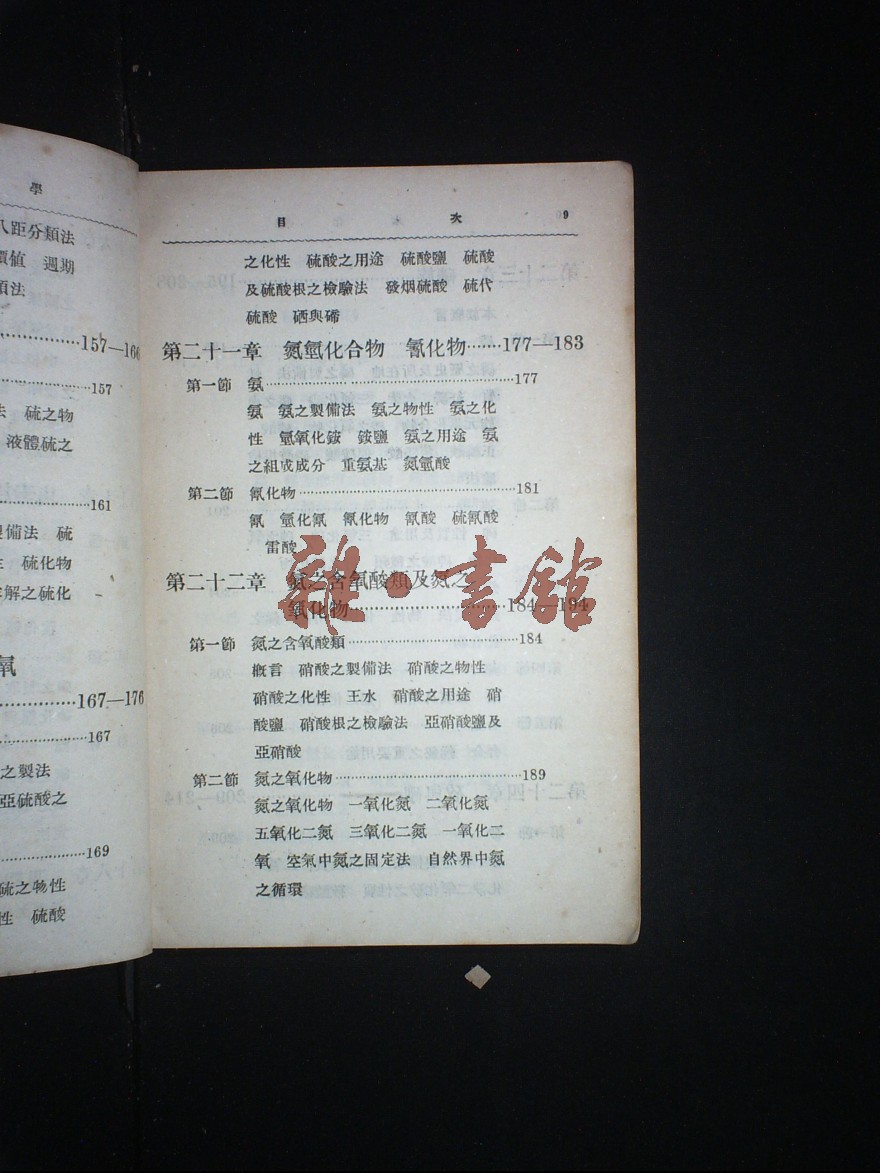 學
八距分類法
價値 週期
類法
157—166
157
法 硫之物
液體硫之
161
製備法 硫
性 硫化物
容解之硫化
氧
167—176
167
之製法
亞硫酸之
169
硫之物性
性 硫酸
目 次 9
之化性 硫酸之用途 硫酸鹽 硫酸
及硫酸根之檢驗法 發烟硫酸 硫代
硫酸 硒與碲
第二十一章 氮氫化合物 氰化物……177—183
第一節 氨……177
氨 氨之製備法 氨之物性 氨之化
性 氫氧化銨 銨鹽 氨之用途 氨
之組成成分 重氨基 氮氫酸
第二節 氰化物……181
氰 氫化氰 氰化物 氰酸 硫氰酸
雷酸
第二十二章 氮之含氧酸類及氮之
氧化物……184—194
雜·書館
第一節 氮之含氧酸類……184
概言 硝酸之製備法 硝酸之物性
硝酸之化性 王水 硝酸之用途 硝
酸鹽 硝酸根之檢驗法 亞硝酸鹽及
亞硝酸
第二節 氮之氧化物……189
氮之氧化物 一氧化氮 二氧化氮
五氧化二氮 三氧化二氮 一氧化二
氧 空氣中氮之固定法 自然界中氮
之循環